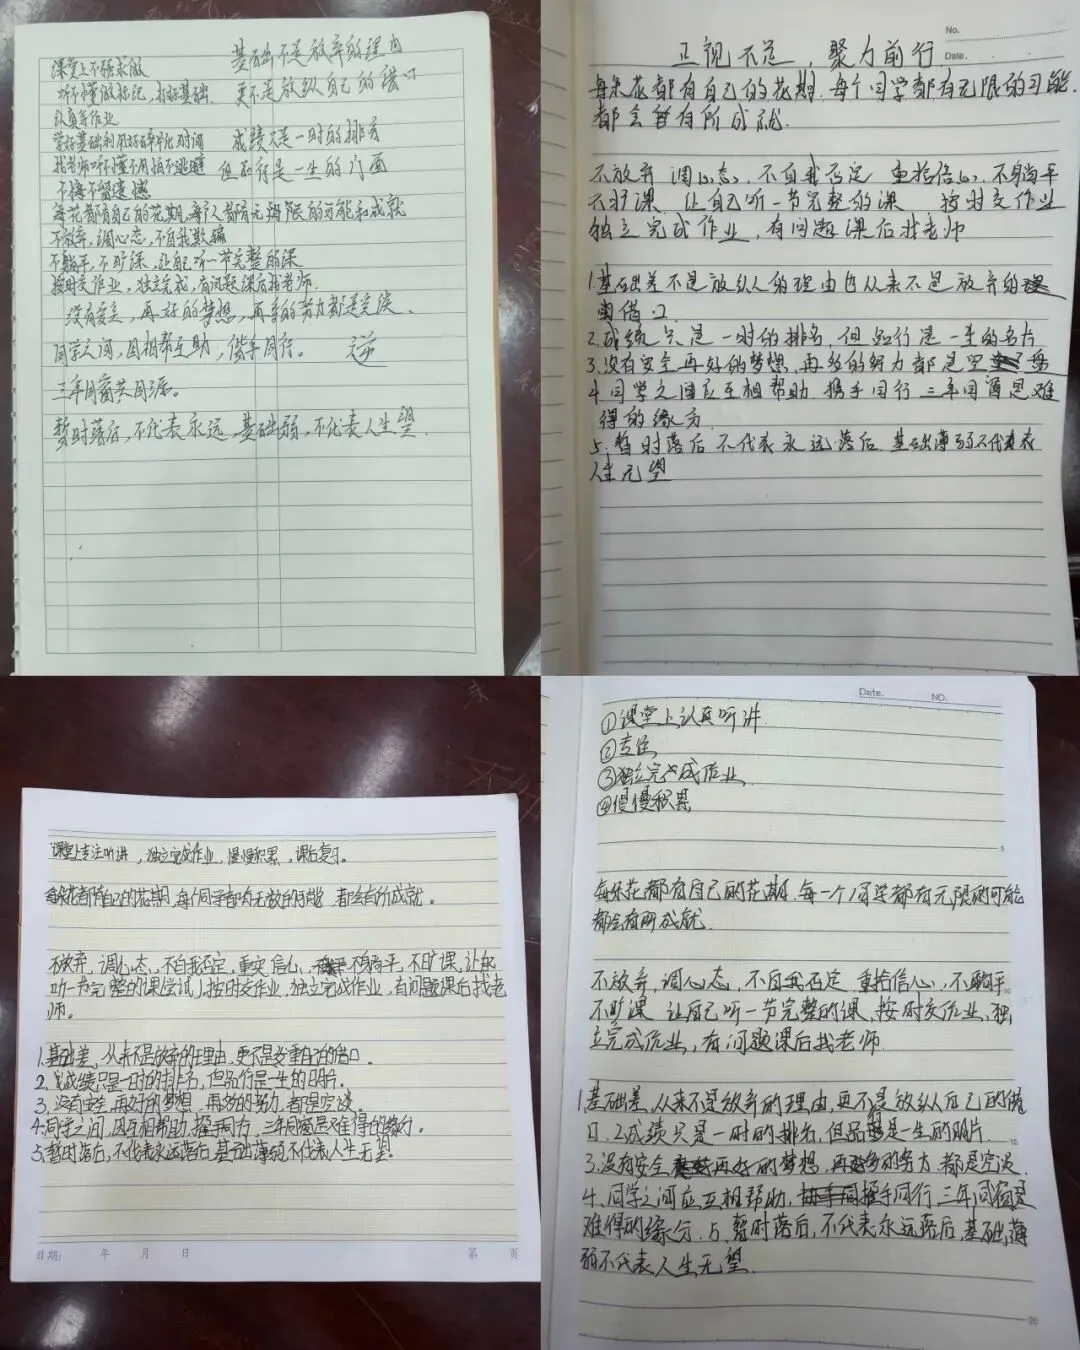 基础不是放弃的理由
课堂上不强求做
听不懂做标记，打好基础.
更不是放纵自己的借口
认真写作业
学好基础利用好碎片化时间
成绩只是一时的排名
找老师听不懂不用怕不逃避
但品行是一生的
不悔不留遗憾
每花都有自己的花期,每个人都有无限的可能和成就
不放弃,调心态,不自我欺骗
不躺平,不旷课,让自己听一节完整的课
按时交作业,独立完成,有问题课后找老师.
没有安全,再好的梦想,再多的努力都是空谈
同学之间,因相帮互助,携手同行。
三年同窗共同源。
暂时落后,不代表永远,基础弱,不代表人生望.
No.
Date.
正视不足,聚力前行.
每朵花都有自己的花期.每个同学都有无限的可能.
都会暂有所成就.
不放弃 调心态、不自我否定 重拾信心、不躺平
不旷课 让自己听一节完整的课 按时交作业
独立完成作业,有问题课后找老师
1.基础差不是放纵人的理由也从来不是放弃的
借口
2.成绩只是一时的排名,但品行是一生的名片
3.没有安全再好的梦想,再多的努力都是空
4.同学之间应互相帮助 携手同行 三年同窗是难
得的缘分
5.暂时落后不代表永远落后 基础薄弱不代表
人生无望
课堂上专注听讲,独立完成作业,慢慢积累,课后复习。
每朵花都有自己的花期,每个同学都有无数的可能,都会有所成就。
不放弃,调心态,不自我否定,重实信心,不躺平,不旷课,让自己
听一节完整的课(尝试)按时交作业,独立完成作业,有问题课后找老
师。
1.基础差,从来不是放弃的理由,更不是自己的借口.
2.成绩只是一时的排名,但品行是一生的名片。
3.没有安全,再好的梦想,再多的努力,都是空谈
4.同学之间,因互相帮助,携手同行,三年同窗是难得的缘分。
5.暂时落后,不代表永远落后 基础薄弱不代表人生无望.
日期: 年 月 日
第 页
Date.
NO.
①课堂上认真听讲.
②专注
③独立完成作业
④慢慢积累
每朵花都有自己的花期.每一个同学都有无限的可能
都会有所成就.
不放弃,调心态,不自我否定,重拾信心,不躺平
不旷课 让自己听一节完整的课,按时交作业,独
立完成作业,有问题课后找老师.
1.基础差,从来不是放弃的理由,更不是放纵自己的借
口.2.成绩只是一时的排名,但品行是一生的名片.
3.没有安全再好的梦想,再多的努力,都是空谈.
4.同学之间应互相帮助,携手同行.三年同窗是
难得的缘分.5.暂时落后,不代表永远落后,基础薄
弱不代表人生无望.